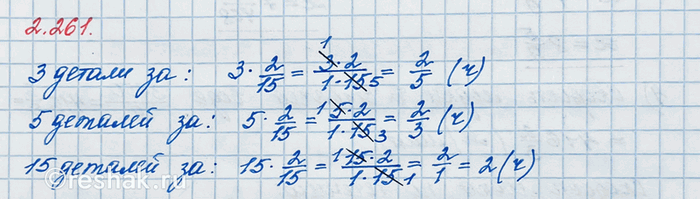 2.261.
3 детали за: 3 · 2/15 = 3 · 2 / 1 · 15 = 2/5 (ч)
5 деталей за: 5 · 2/15 = 5 · 2 / 1 · 15 = 2/3 (ч)
15 деталей за: 15 · 2/15 = 15 · 2 / 1 · 15 = 2/1 = 2 (ч)
reshak.ru